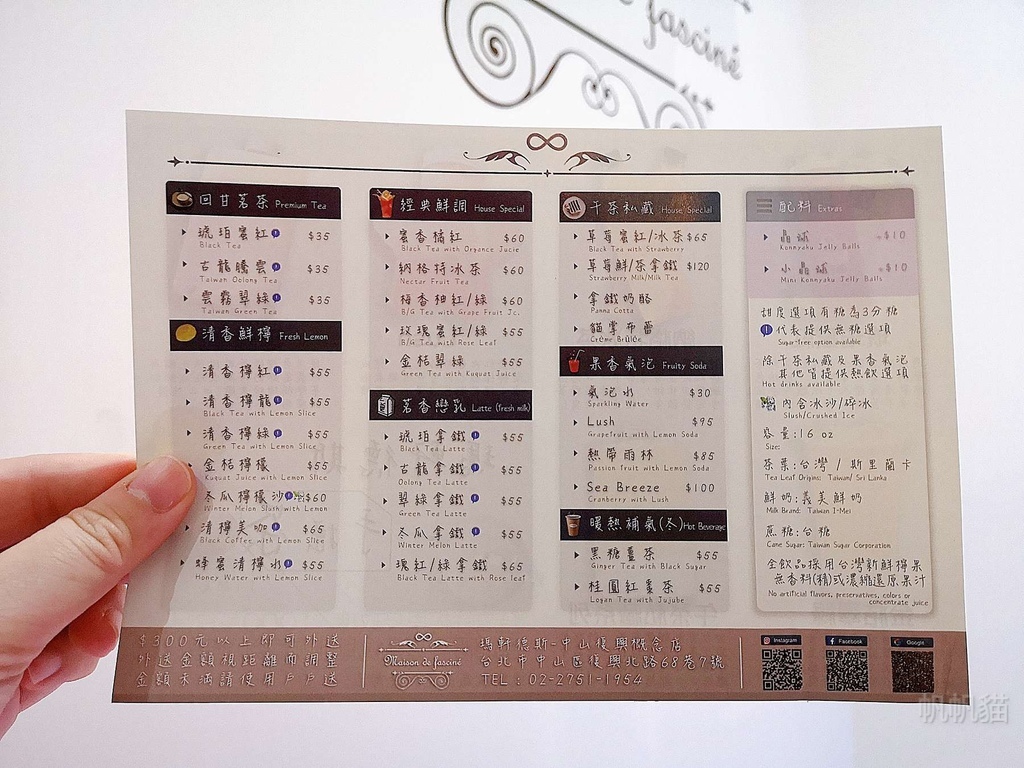 fasciné
回甘茗茶 Premium Tea
琥珀蜜紅 $35
Black Tea
古龍騰雲 $35
Taiwan Oolong Tea
雲霧翠綠 $35
Taiwan Green Tea
清香鮮檸 Fresh Lemon
清香檸紅 $55
Black Tea with Lemon Slice
清香檸龍 $55
Oolong Tea with Lemon Slice
清香檸綠 $55
Green Tea with Lemon Slice
金桔檸檬 $55
Kuquat Juice with Lemon Slice
冬瓜檸檬沙 $60
Winter Melon Slush with Lemon
清檸美咖 $65
Black Coffee with Lemon Slice
蜂蜜清檸水 $55
Honey Water with Lemon Slice
經典鮮調 House Special
蜜香橘紅 $60
Black Tea with Organce Jucie
納格特冰茶 $60
Nectar Fruit Tea
梅香柚紅/綠 $60
B/G Tea with Grape Fruit Jc.
玫瑰蜜紅/綠 $55
B/G Tea with Rose Leaf
金桔翠綠 $55
Green Tea with Kuquat Juice
茗香戀乳 Latte (fresh milk)
琥珀拿鐵 $55
Black Tea Latte
古龍拿鐵 $55
Oolong Tea Latte
翠綠拿鐵 $55
Green Tea Latte
冬瓜拿鐵 $55
Winter Melon Latte
瑰紅/綠拿鐵 $65
Black Tea Latte with Rose leaf
干茶私藏 House Special
草莓蜜紅/冰茶 $65
Black Tea with Strawberry
草莓鮮/茶拿鐵 $120
Strawberry Milk/Milk Tea
拿鐵奶酪
Panna Cotta
貓掌布蕾
Crème Brûlée
果香氣泡 Fruity Soda
氣泡水 $30
Sparkling Water
Lush $95
Grapefruit with Lemon Soda
熱帶雨林 $85
Passion fruit with Lemon Soda
Sea Breeze $100
Cranberry with Lush
暖熱補氣(冬) Hot Beverage
黑糖薑茶 $55
Ginger Tea with Black Sugar
桂圓紅棗茶 $55
Logan Tea with Jujube
配料 Extras
晶球 +$10
Konnyaku Jelly Balls
小晶球 +$10
Mini Konnyaku Jelly Balls
甜度選項有糖為3分糖
代表提供無糖選項
Sugar-free option available
除干茶私藏及果香氣泡
其他皆提供熱飲選項
Hot drinks available
內含冰沙/碎冰
Slush/Crushed Ice
容量:16 oz
Size:
茶葉:台灣 / 斯里蘭卡
Tea Leaf Origins: Taiwan/ Sri Lanka
鮮奶:義美鮮奶
Milk Brand: Taiwan I-Mei
蔗糖:台糖
Cane Sugar: Taiwan Sugar Corporation
全飲品採用台灣新鮮檸果
無香料(精)或濃縮還原果汁
No artificial flavors, preservatives, colors or
concentrate juice
$300元以上即可外送
外送金額視距離而調整
金額未滿請使用戶戶送
Maison de fasciné
瑪軒德斯-中山復興概念店
台北市中山區復興北路68巷7號
TEL : 02-2751-1954
Instagram
Facebook
Google
帆帆貓